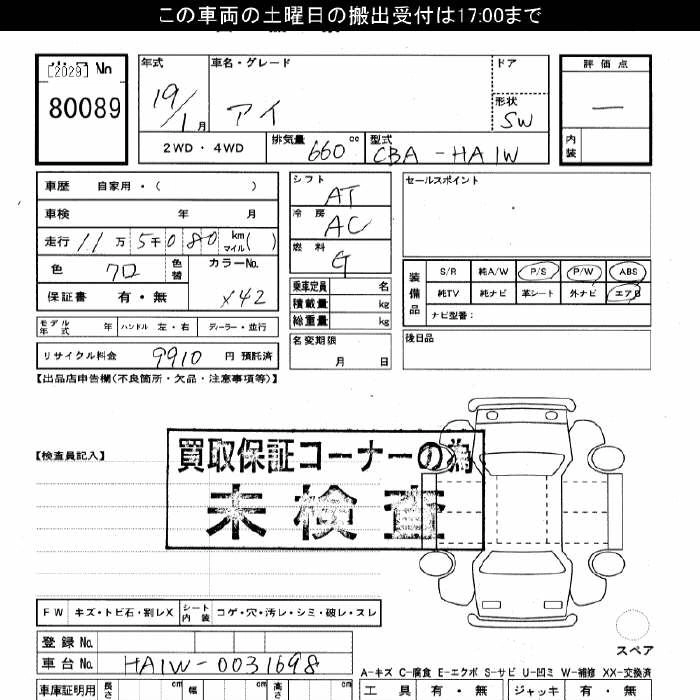 この車両の土曜日の搬出受付は17:00まで
[2029] No
80089
年式 19/1月
車名・グレード アイ
ドア
形状 SW
評価点 —
内装
2WD・4WD
排気量 660 cc
型式 CBA-HA1W
車歴 自家用・( )
車検 年 月
走行 11万5千080 km マイル( )
色 クロ 色替
カラーNo. X42
保証書 有・無
モデル年式 年 ハンドル 左・右 ディーラー・並行
リサイクル料金 9910 円 預託済
シフト AT
冷房 AC
燃料 G
乗車定員 名
積載量 kg
総重量 kg
名変期限 月 日
セールスポイント
装備品
S/R 純A/W P/S P/W ABS
純TV 純ナビ 革シート 外ナビ エアB
ナビ型番:
後日品
【出品店申告欄(不良箇所・欠品・注意事項等)】
【検査員記入】
買取保証コーナーの為
未検査
FW キズ・トビ石・割レX シート内装 コゲ・穴・汚レ・シミ・破レ・スレ
登録No.
車台No. HA1W-0031698
車庫証明用 長さ cm 幅 cm 高さ cm
スペア
A-キズ C-腐食 E-エクボ S-サビ U-凹ミ W-補修 XX-交換済
工具 有・無 ジャッキ 有・無